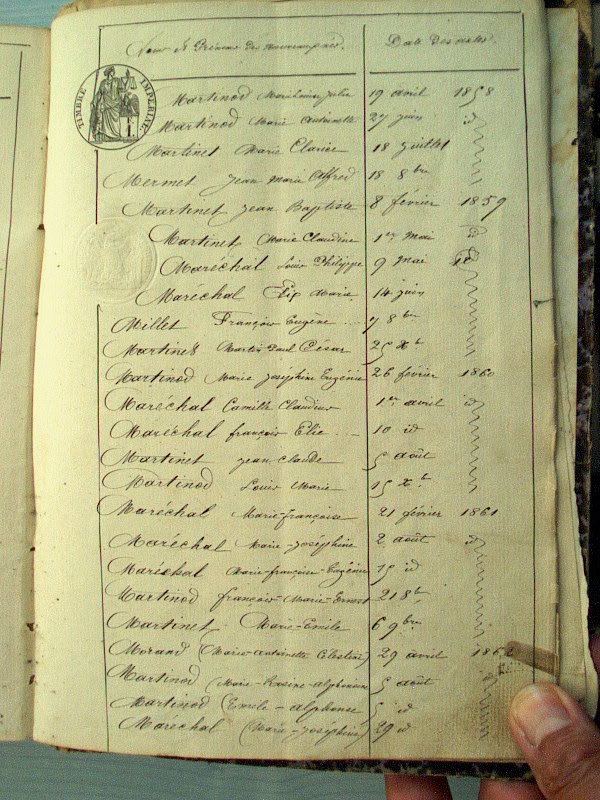 Noms et Prénoms des nouveaux-nés. Date des actes.
TIMBRE IMPERIAL
Martinod Marie Louise Julie 19 avril 1858
Martinod Marie Antoinette 27 juin id
Martinet Marie Clarice 18 juillet
Mermet Jean Marie Alfred 18 8bre
Martinet Jean Baptiste 8 février 1859
Martinet Marie Claudine 1er Mai id
Maréchal Louis Philippe 9 Mai id
Maréchal Marie 14 juin
Millet François Eugène 7 8bre
Martinet Martin Paul César 25 Xbre
Martinod Marie Joséphine Eugénie 26 février 1860
Maréchal Camille Claudine 1er avril id
Maréchal françois Elie 10 id
Martinet jean Claude 5 août
Martinod Louis Marie 15 Xbre
Maréchal Marie-françoise 21 février 1861
Maréchal Marie-Joséphine 2 août id
Maréchal Marie-françoise-Eugénie 15 id
Martinod françois-Marie-Ernest 21 8bre
Martinet Marie-Emile 6 9bre
Morand (Marie-Antoinette Célestine) 29 avril 1862
Martinod (Marie- -alphonsine 5 août
Martinod (Emile-alphonse 5 id
Maréchal (Marie-Joséphine) 29 id